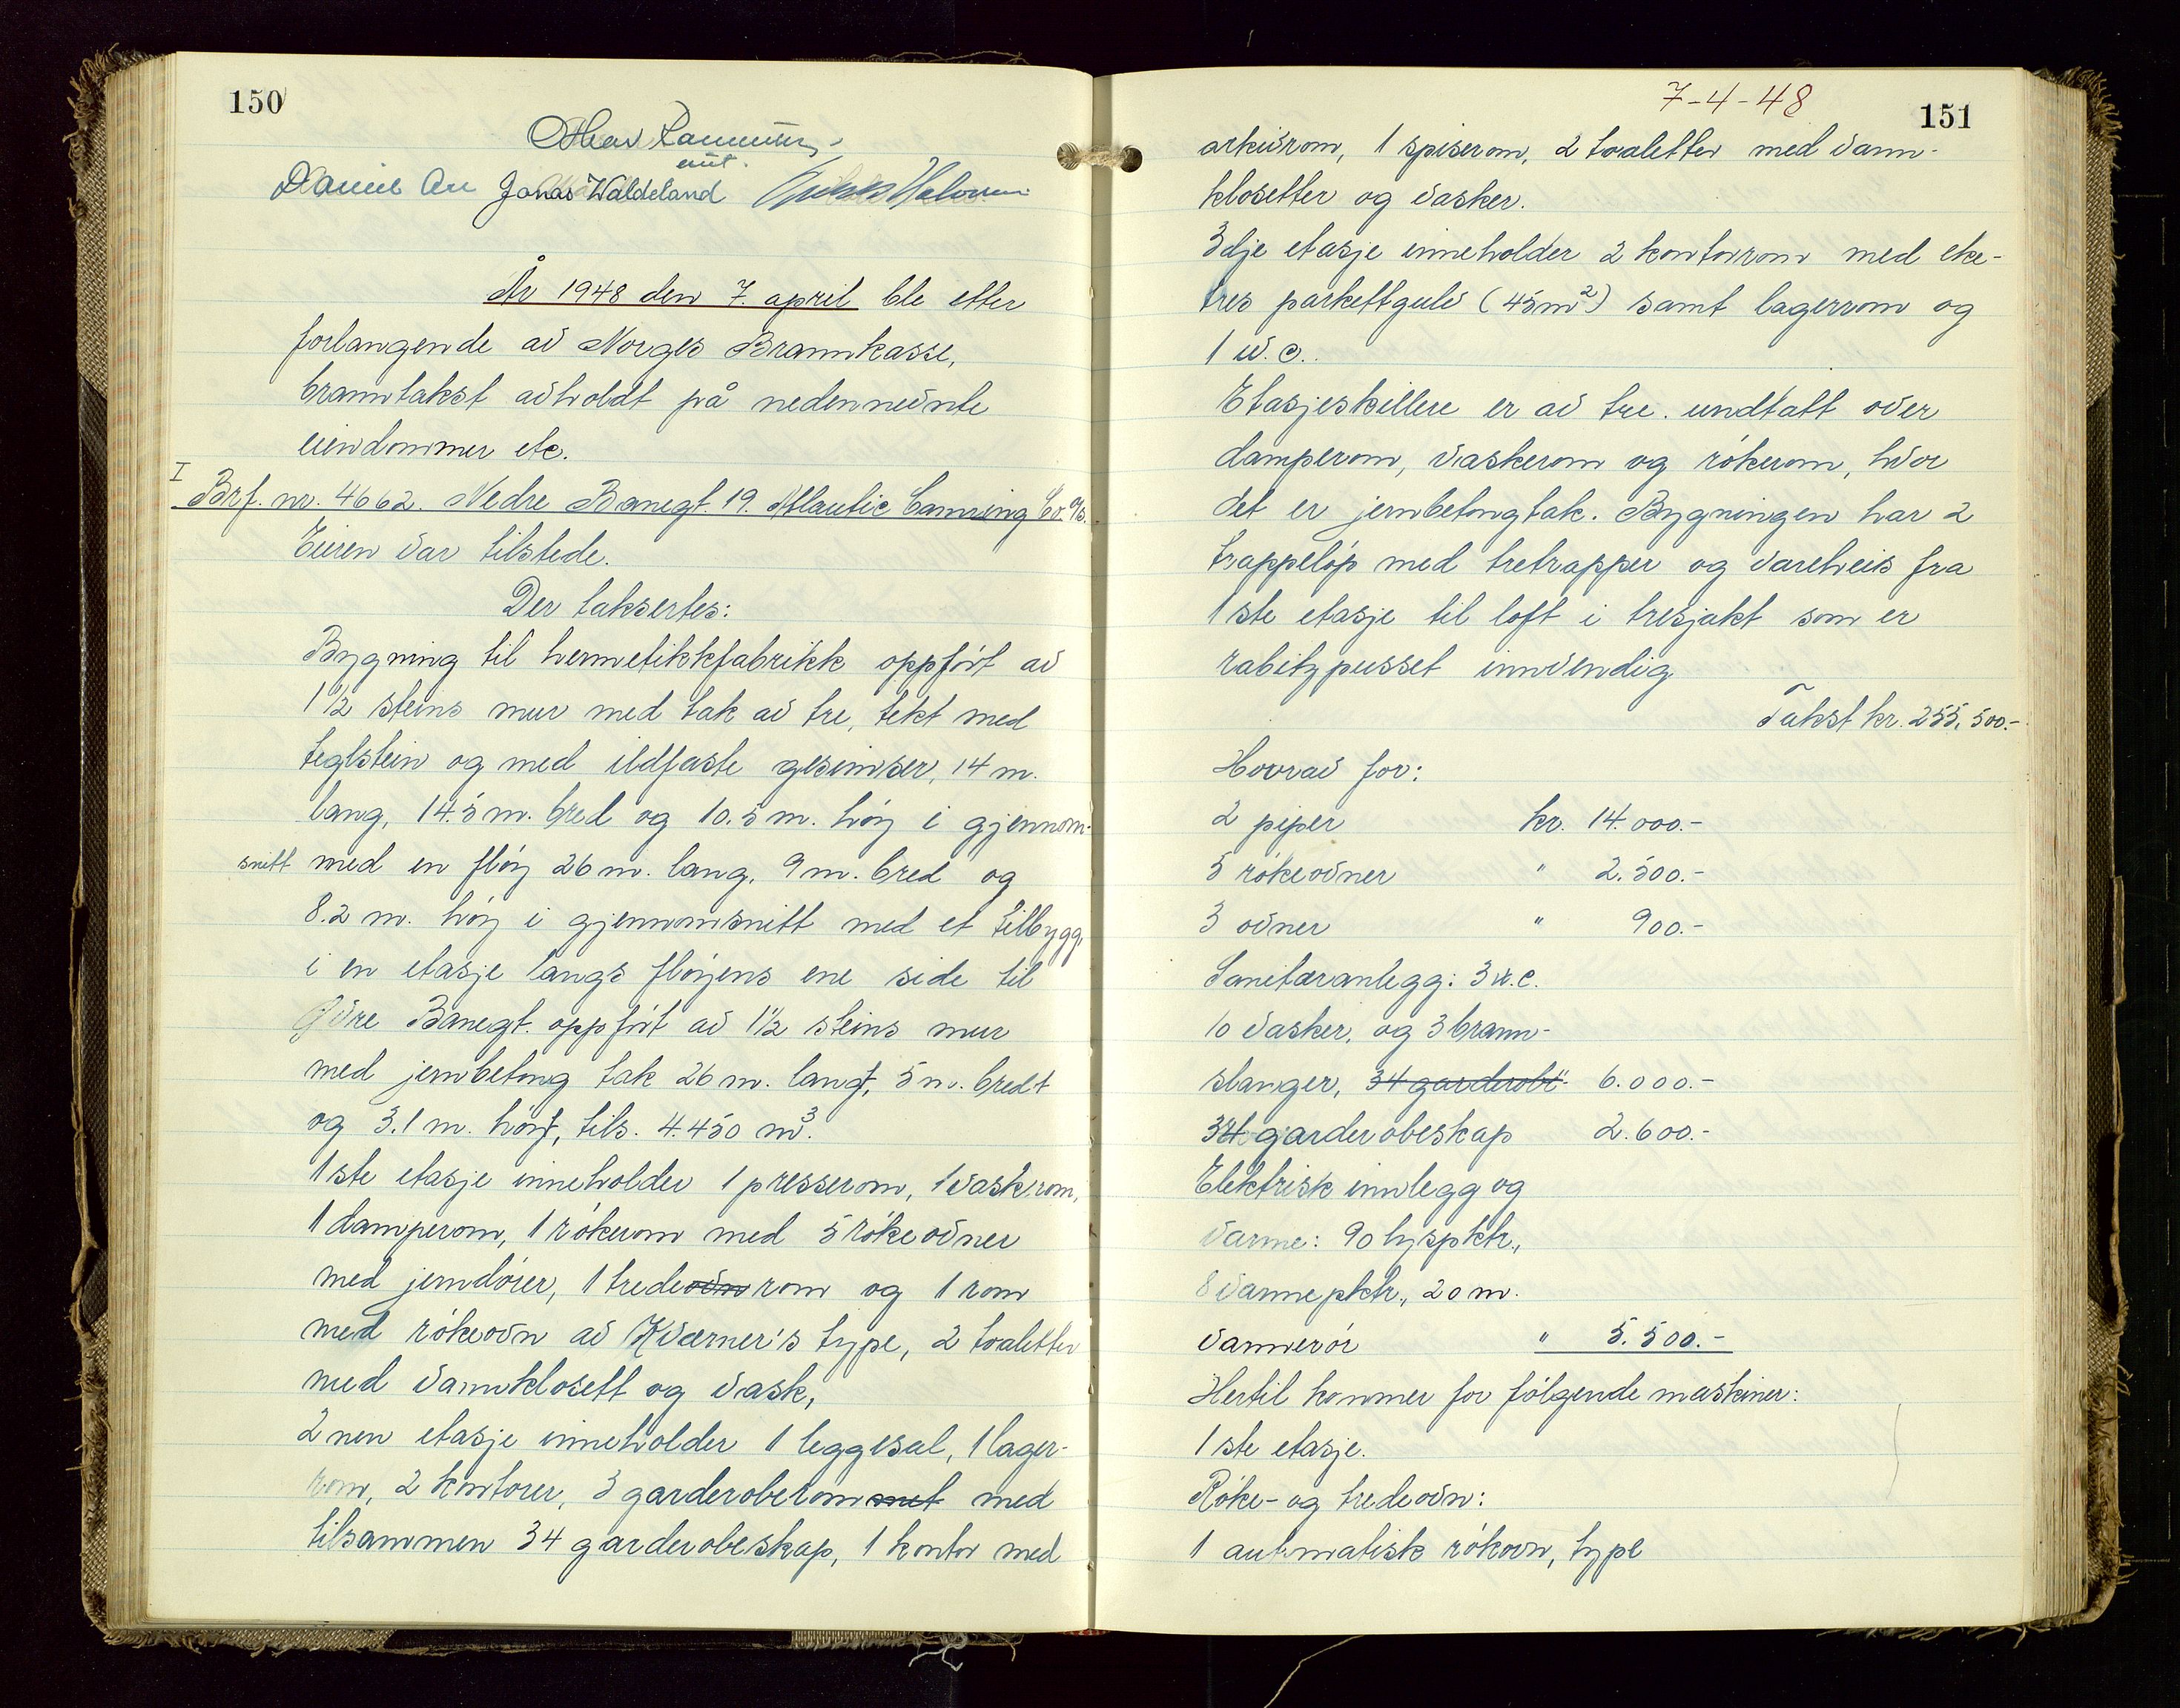 150
emt.
Daniel Jonas Waldeland
År 1948 den 7. april ble etter
forlangende av Norges Brannkasse,
branntakst avholdt på nedennevnte
eiendommer etc.
I
Brf. nr. 4662. Nedre Banegt. 19. Atlantic Canning Co. A/S.
Eieren var tilstede.
Der taksertes:
Bygning til hermetikkfabrikk oppført av
1 1/2 steins mur med tak av tre, tekt med
teglstein og med ildfaste gesimser, 14 m.
lang, 14.5 m. bred og 10.5 m. høy i gjennom-
snitt med en fløy 26 m. lang, 9 m. bred og
8.2 m. høy i gjennomsnitt med et tilbygg
i en etasje langs fløyens ene side til
Øvre Banegt. oppført av 1 1/2 steins mur
med jernbetong tak 26 m. langt, 5 m. bredt
og 3.1 m. høyt, tils. 4.450 m³.
1ste etasje inneholder 1 presserom, 1 vaskerom,
1 damperom, 1 rökerom med 5 rökeovner
med jerndører, 1 tredeovn rom og 1 rom
med rökeovn av Kværner's type, 2 toaletter
med vannklosett og vask,
2nen etasje inneholder 1 leggesal, 1 lager-
rom, 2 kontorer, 3 garderoberom met med
tilsammen 34 garderobeskap, 1 kontor med
7-4-48
151
arkivrom, 1 spiserom, 2 toaletter med vann-
klosetter og vasker.
3dje etasje inneholder 2 kontorrom med eke-
tres parkettgulv (45m²) samt lagerrom og
1 w.c..
Etasjeskillere er av tre. undtatt over
damperom, vaskerom og rökerom, hvor
det er jernbetongtak. Bygningen har 2
trappeløp med tretrapper og vareheis fra
1ste etasje til loft i tresjakt som er
rabitzpusset innvendig
Takst kr. 255.500.-
Hvorav for:
2 piper kr. 14.000.-
5 rökeovner " 2.500.-
3 ovner " 900.-
Sanitæranlegg: 3 w.c.
10 vasker, og 3 brann-
slanger, 34 garderobe- 6.000.-
34 garderobeskap 2.600.-
Elektrisk innlegg og
varme: 90 lyspktr.,
8 varmepktr., 20 m.
varmerör " 5.500.-
Hertil kommer for følgende maskiner:
1ste etasje.
Röke- og tredeovn:
1 automatisk rökovn, type